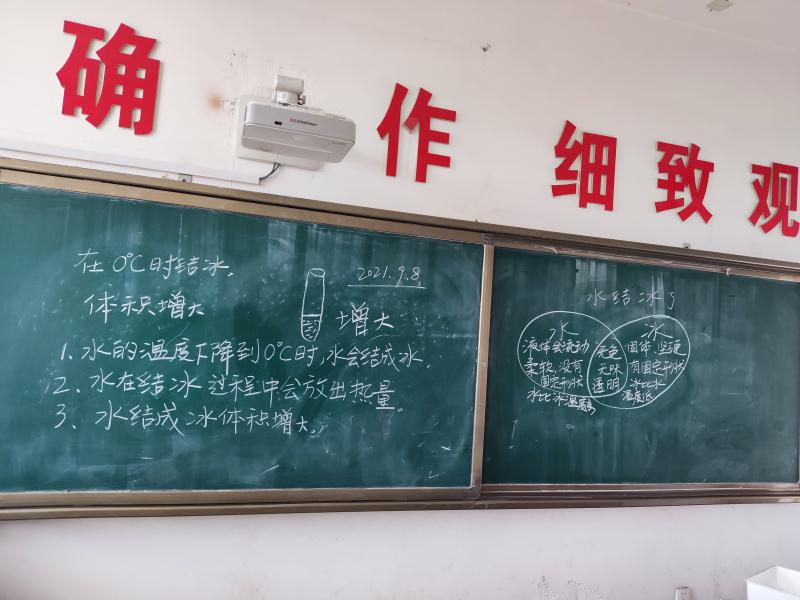 确
作
细致观
在0℃时结冰。
体积增大
2021.9.8
增大
1、水的温度下降到0℃时,水会结成冰。
2、水在结冰过程中会放出热量。
3、水结成冰体积增大。
水结冰了
水
液体会流动
柔软,没有
固定形状
水比冰温度高
无色
无味
透明
冰
固体,坚硬
有固定形状
冰比水
温度低